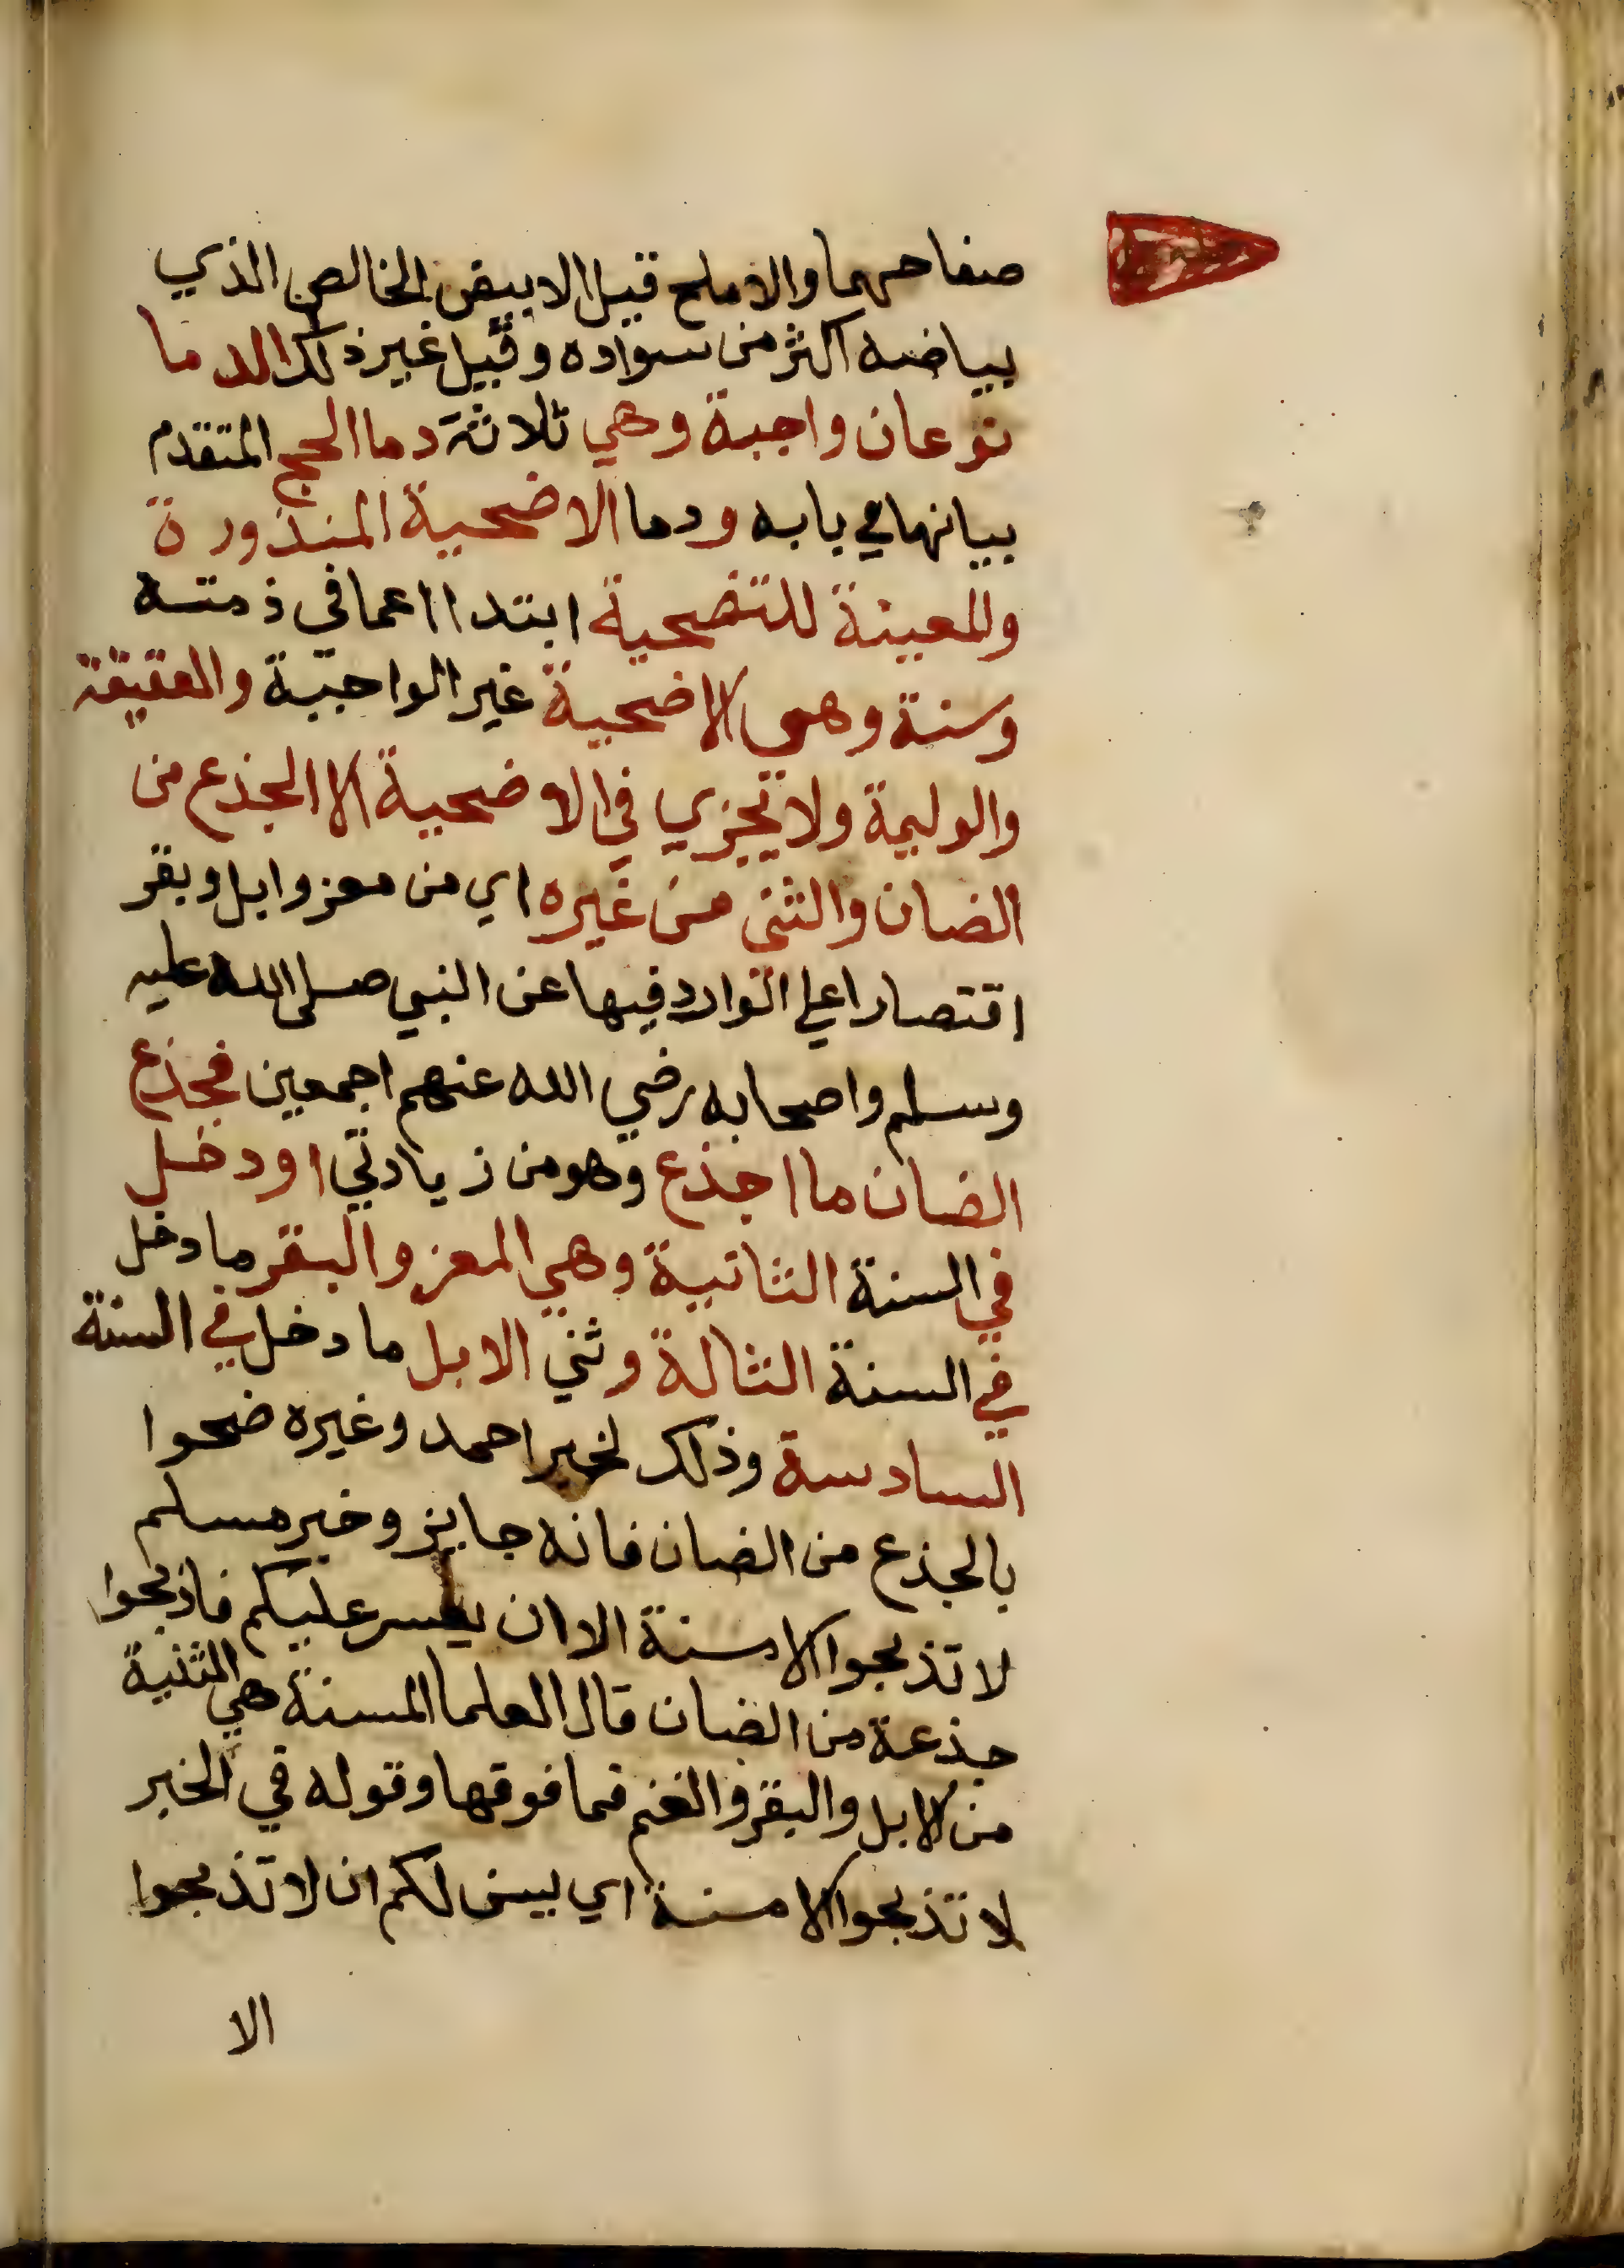 صفاحهما والاملح قيل الابيض الخالص الذي
بياضه اكثر من سواده وقيل غير ذلك الدما
نوعان واجبة وهي ثلاثة دما الحج المتقدم
بيانها في بابه ودما الاضحية المنذورة
والمعينة للتضحية ابتدا اعما في ذمته
وسنة وهي الاضحية غير الواجبة والعقيقة
والوليمة ولا تجزي في الاضحية الا الجذع من
الضان والثني من غيره اي من معز وابل وبقر
اقتصارا علي الوارد فيها عن النبي صلى الله عليه
وسلم واصحابه رضي الله عنهم اجمعين فجذع
الضان ما اجذع وهو من زيادتي او دخل
في السنة الثانية وهي المعز والبقر ما دخل
في السنة الثالة وثني الابل ما دخل في السنة
السادسة وذلك لخبر احمد وغيره ضحوا
بالجذع من الضان فانه جايز وخبر مسلم
لا تذبحوا الا مسنة الا ان يعسر عليكم فاذبحوا
جذعة من الضان قال العلما المسنة هي الثنية
من الابل والبقر والغنم فما فوقها وقوله في الخبر
لا تذبحوا الا مسنة اي يسن لكم ان لا تذبحوا
الا